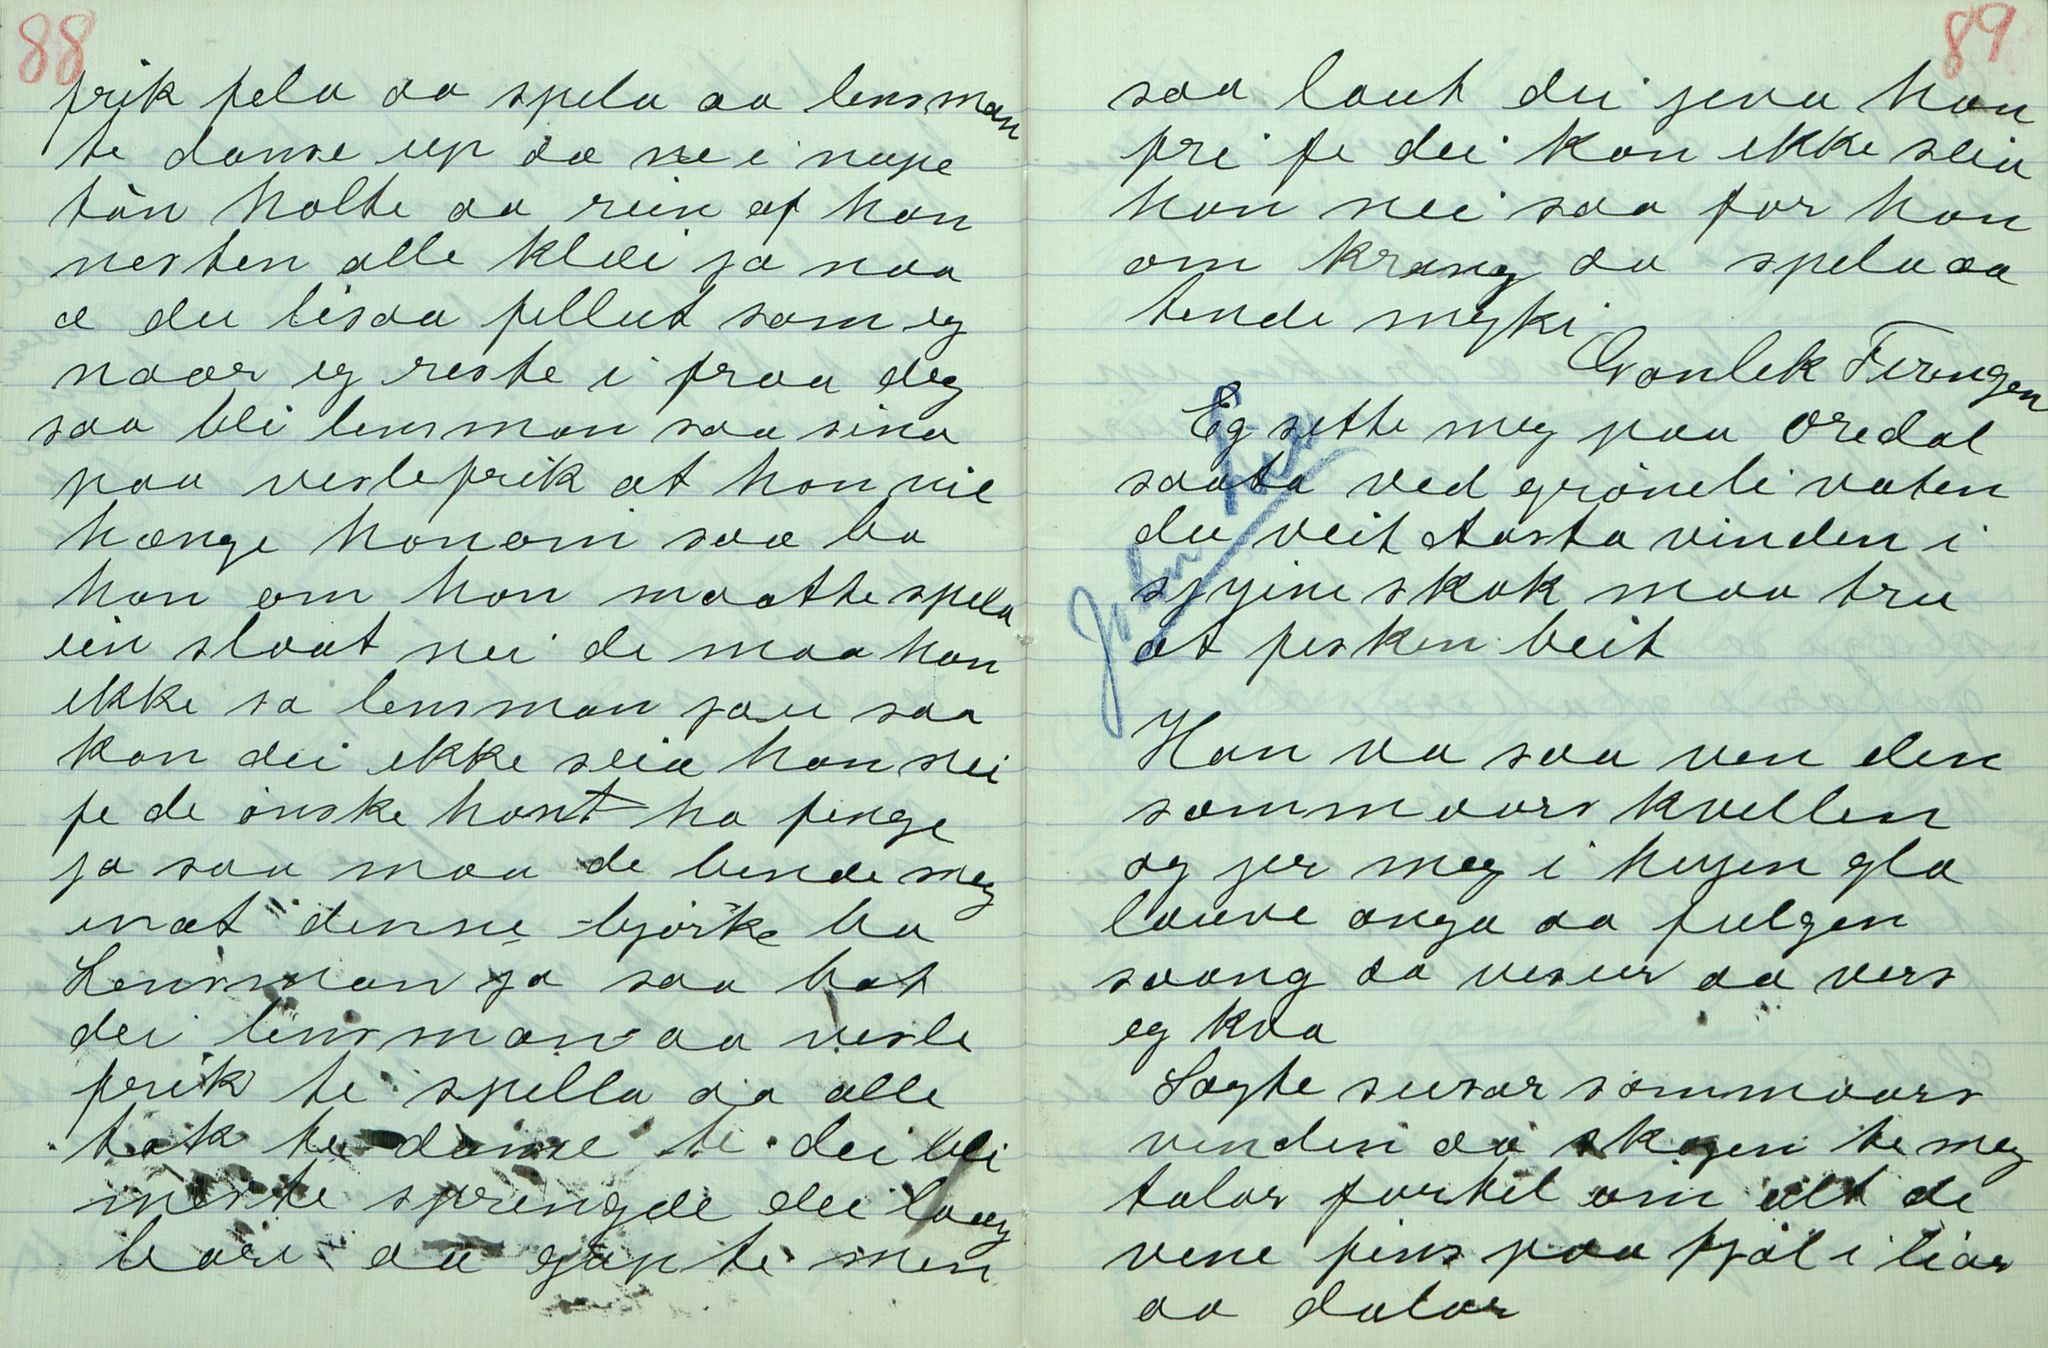 88
frik fela aa spela aa lensman
te danse up aa ne i nupe
tån holte aa rein af han
nesten alle klæi ja naa
æ du lisaa fillut som eg
naar eg reste i fraa deg
saa bli lensman saa sina
paa veslefrik at han vil
hænge honom saa ba
han om han maatte spela
ein slaat nei de maa han
ikke sa lensman jau saa
kan dei ikke seia han nei
fe de ønske hant ha fenge
ja saa maa de bende meg
inat denne bjørke ba
Lensman ja saa bat
dei lensman aa vesle
frik te spella aa alle
tok te danse te dei bli
mæste sprengde dei laag
bare aa gapte men
89
saa laut dei jeva han
fri fe dei kan ikke seia
han nei saa for han
om kring aa spela aa
tende myki
Gonlek Firongen
Eg sette meg paa Øredal
saata ved grøneli vaten
du veit Aasta vinden i
syyine skok maa tru
at fisken beit
John
Han va saa ven den
sommaars kvellen
og jer meg i hugen gla
lauve anga aa fulgen
saang aa viseur aa vers
eg kva
Sagte susar sommaars
vinden aa skogen te meg
talar fortel om alt de
vene fins paa fjøl i liar
aa dalar